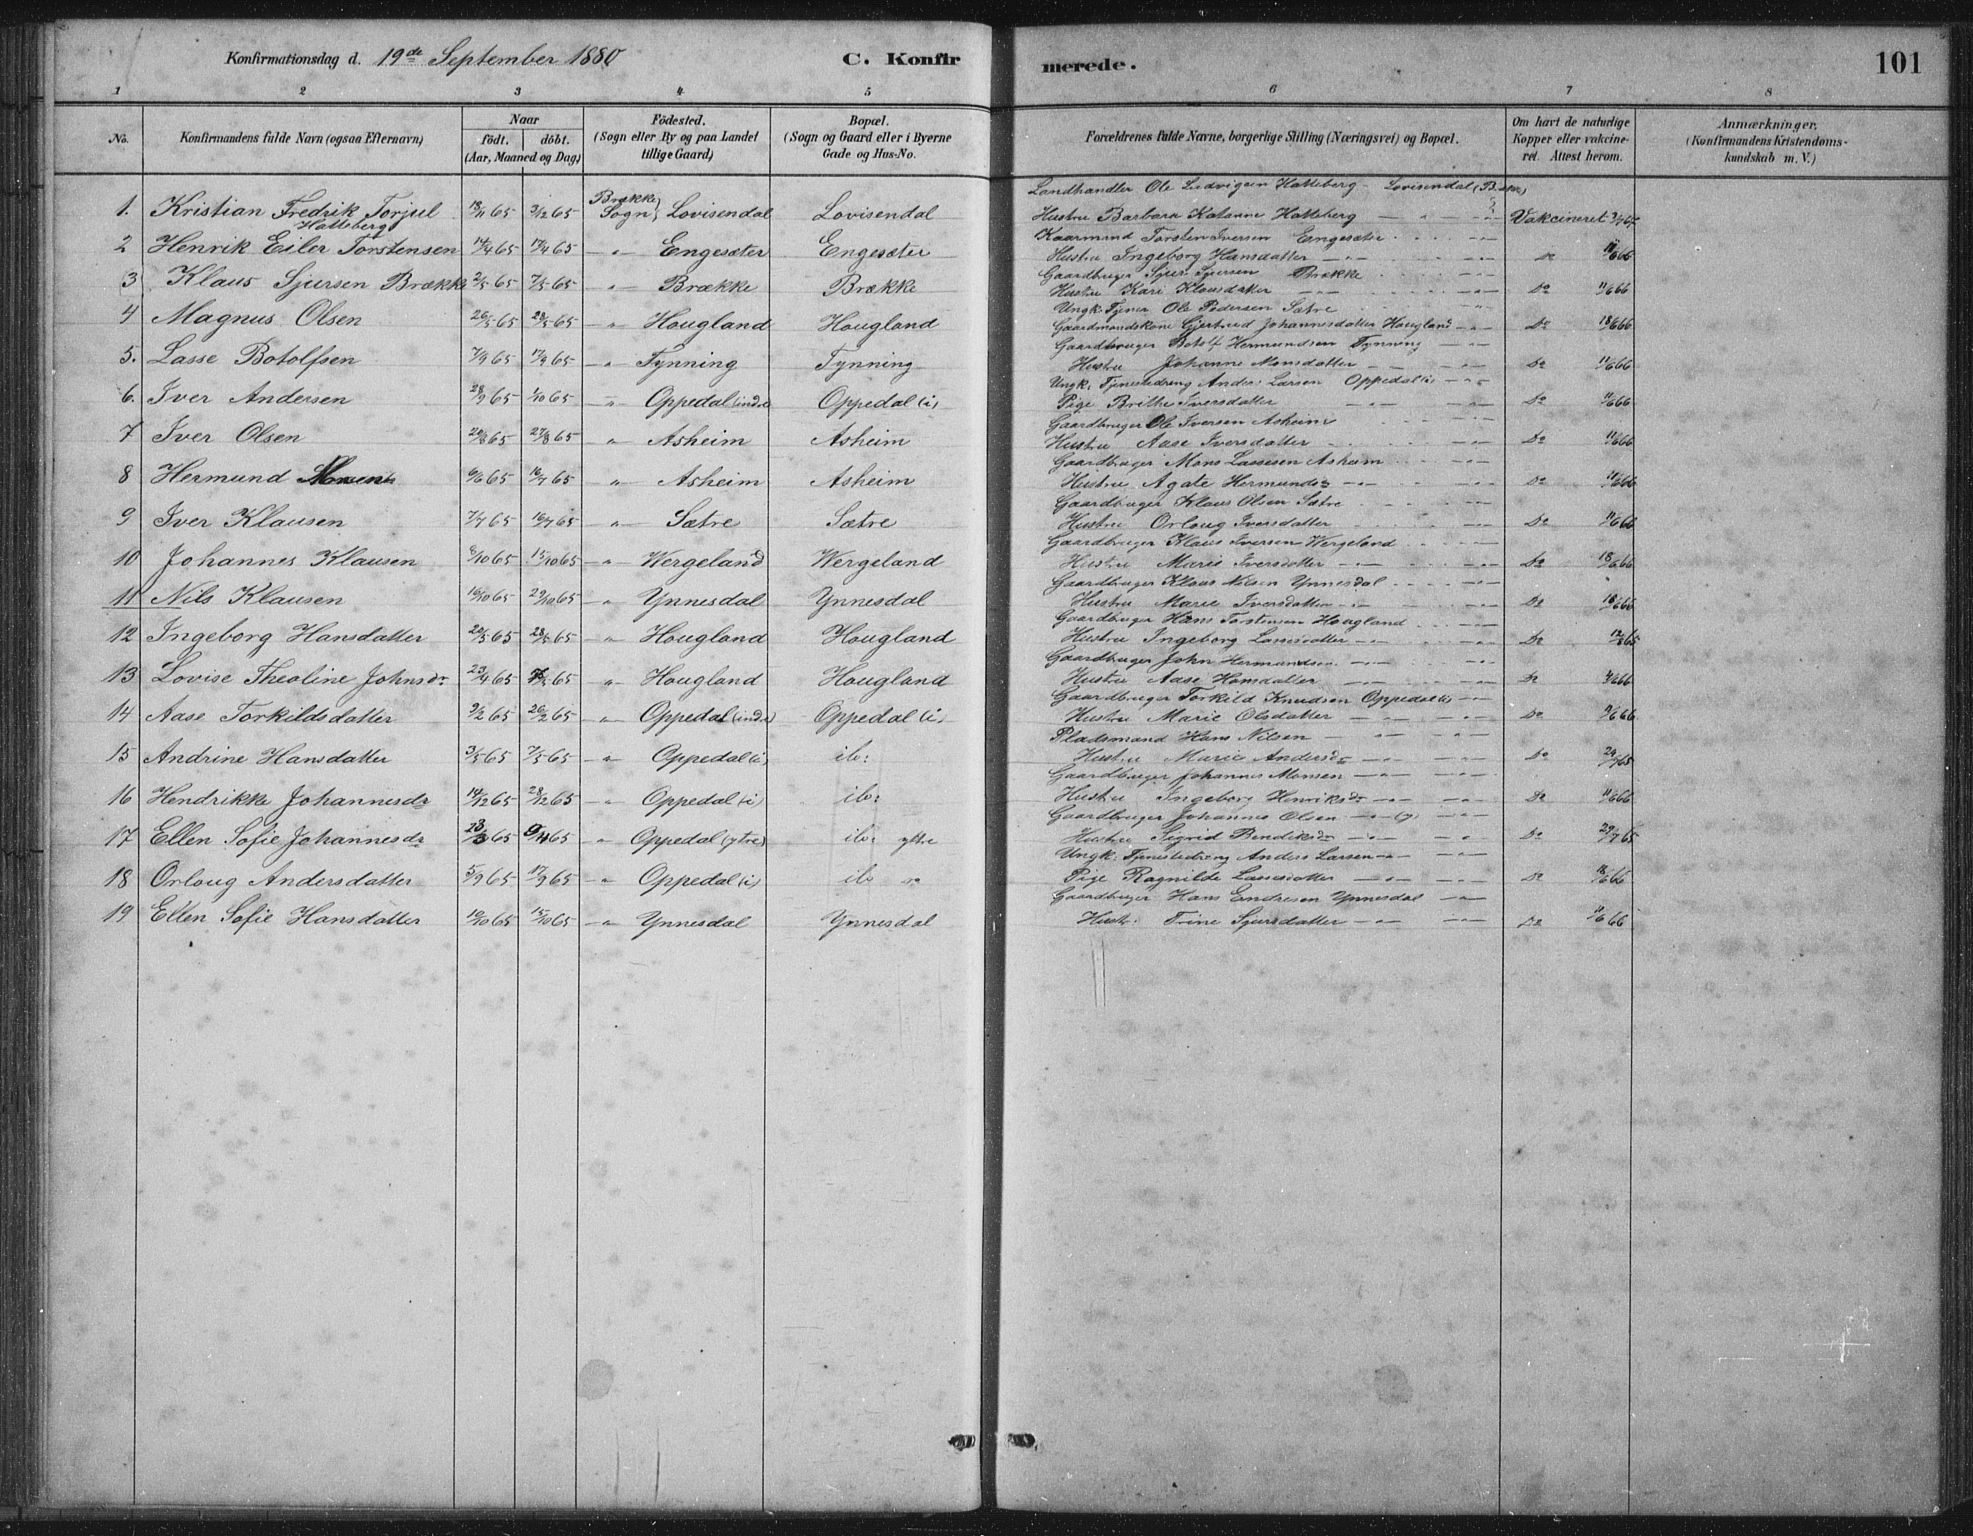 Konfirmationsdag d. 19de September 1880 C. Konfir
merede. 101
1 2 3 4 5 6 7 8
No. Konfirmandens fulde Navn (ogsaa Efternavn) Naar født. døbt. (Aar, Maaned og Dag) Födested. (Sogn eller By og paa Landet tillige Gaard) Bopæl. (Sogn og Gaard eller i Byerne Gade og Hus-No.
Forældrenes fulde Navne, borgerlige Stilling (Næringsvei) og Bopæl. Om havt de naturlige Kopper eller vakcineret. Attest herom. Anmærkninger. (Konfirmandens Kristendomskundskab m. V.)
Landhandler Ole Ludvigsen Hatteberg Lovisendal
1. Kristian Fredrik Torjul Hatteberg 18/11 65 3/12 65 Brække Sogn Lovisendal Lovisendal Hustru Barbara Katarine Hatteberg Vakcineret
Kaarmand Torsten Iversen Engesæter
2 Henrik Eiler Torstensen 14/4 65 17/4 65 -"- Engesæter Engesæter Hustru Ingeborg Hansdatter -"- Do 11/6 66
Gaardbruger Sjur Sjursen Brække
3 Klaus Sjursen Brække 2/5 65 7/5 65 -"- Brække Brække Hustru Kari Klausdatter -"- Do 11/6 66
Ungk. Tjener Ole Pedersen Sætre
4 Magnus Olsen 26/5 65 28/5 65 -"- Hougland Hougland Gaardmandskone Gjertrud Johannesdatter Hougland -"- Do 18/6 66
Gaardbruger Botolf Hermundsen Tynning -"-
5. Lasse Botolfsen 7/9 65 17/9 65 -"- Tynning Tynning Hustru Johanne Monsdatter -"- Do 11/6 66
Ungk. Tjenestedreng Anders Larsen Oppedal (i) -"-
6. Iver Andersen 28/9 65 1/10 65 -"- Oppedal (indre Oppedal (i) Pige Brithe Iversdatter -"- Do 11/6 66
Gaardbruger Ole Iversen Asheim
7 Iver Olsen 20/8 65 27/8 65 " Asheim Asheim Hustru Aase Iversdatter -"- Do 11/6 66
Gaardbruger Mons Lassesen Asheim -"-
8 Hermund Monsen 6/6 65 16/7 65 " Asheim Asheim Hustru Agate Hermundsdr -"- Do 11/6 66
Gaardbruger Klaus Olsen Sætre -"-
9 Iver Klausen 7/7 65 16/7 65 -"- Sætre Sætre Hustru Orloug Iversdatter -"- Do 11/6 66
Gaardbruger Klaus Iversen Wergeland -"-
10 Johannes Klausen 8/10 65 15/10 65 -"- Wergeland Wergeland Hustru Marie Iversdatter -"- Do 18/6 66
Gaardbruger Klaus Nilsen Ynnesdal -"-
11 Nils Klausen 16/10 65 29/10 65 -"- Ynnesdal Ynnesdal Hustru Marie Iversdatter -"- Do 18/6 66
Gaardbruger Hans Torstensen Hougland -"-
12 Ingeborg Hansdatter 22/5 65 28/5 65 -"- Hougland Hougland Hustru Ingeborg Lassesdatter -"- Do
Gaardbruger John Hermundsen -"-
13 Lovise Theoline Johnsdr 23/4 65 65 " Hougland Hougland Hustru Aase Hansdatter -"- Do
Gaardbruger Torkild Knudsen Oppedal (i) -"-
14 Aase Torkildsdatter 9/2 65 26/2 65 -"- Oppedal (indre Oppedal (i) Hustru Marie Olsdatter -"- Do
Pladsmand Hans Nilsen -"-
15 Andrine Hansdatter 3/5 65 7/5 65 -"- Oppedal (i) ib: Hustru Marie Andersdr -"- Do 29/7 65
Gaardbruger Johannes Monsen -"-
16 Hendrikke Johannesdr 14/12 65 28/12 65 -"- Oppedal (i) ib: Hustru Ingeborg Henriksdr -"- Do 11/6 66
Gaardbruger Johannes Olsen -"- (y) -"-
17 Ellen Sofie Johannesdr 28/3 65 65 " Oppedal (ytre) ib: ytre Hustru Sigrid Bendiksdr -"- Do 29/7 65
Ungk: Tjenestedreng Anders Larsen -"-
18 Orloug Andersdatter 5/9 65 17/9 65 -"- Oppedal (i) ib Pige Ragnilde Lassesdatter -"- Do
Gaardbruger Hans Endresen Ynnesdal -"-
19 Ellen Sofie Hansdatter 10/10 65 15/10 65 -"- Ynnesdal Ynnesdal Hustr: Trine Sjursdatter -"- Do 11/6 66